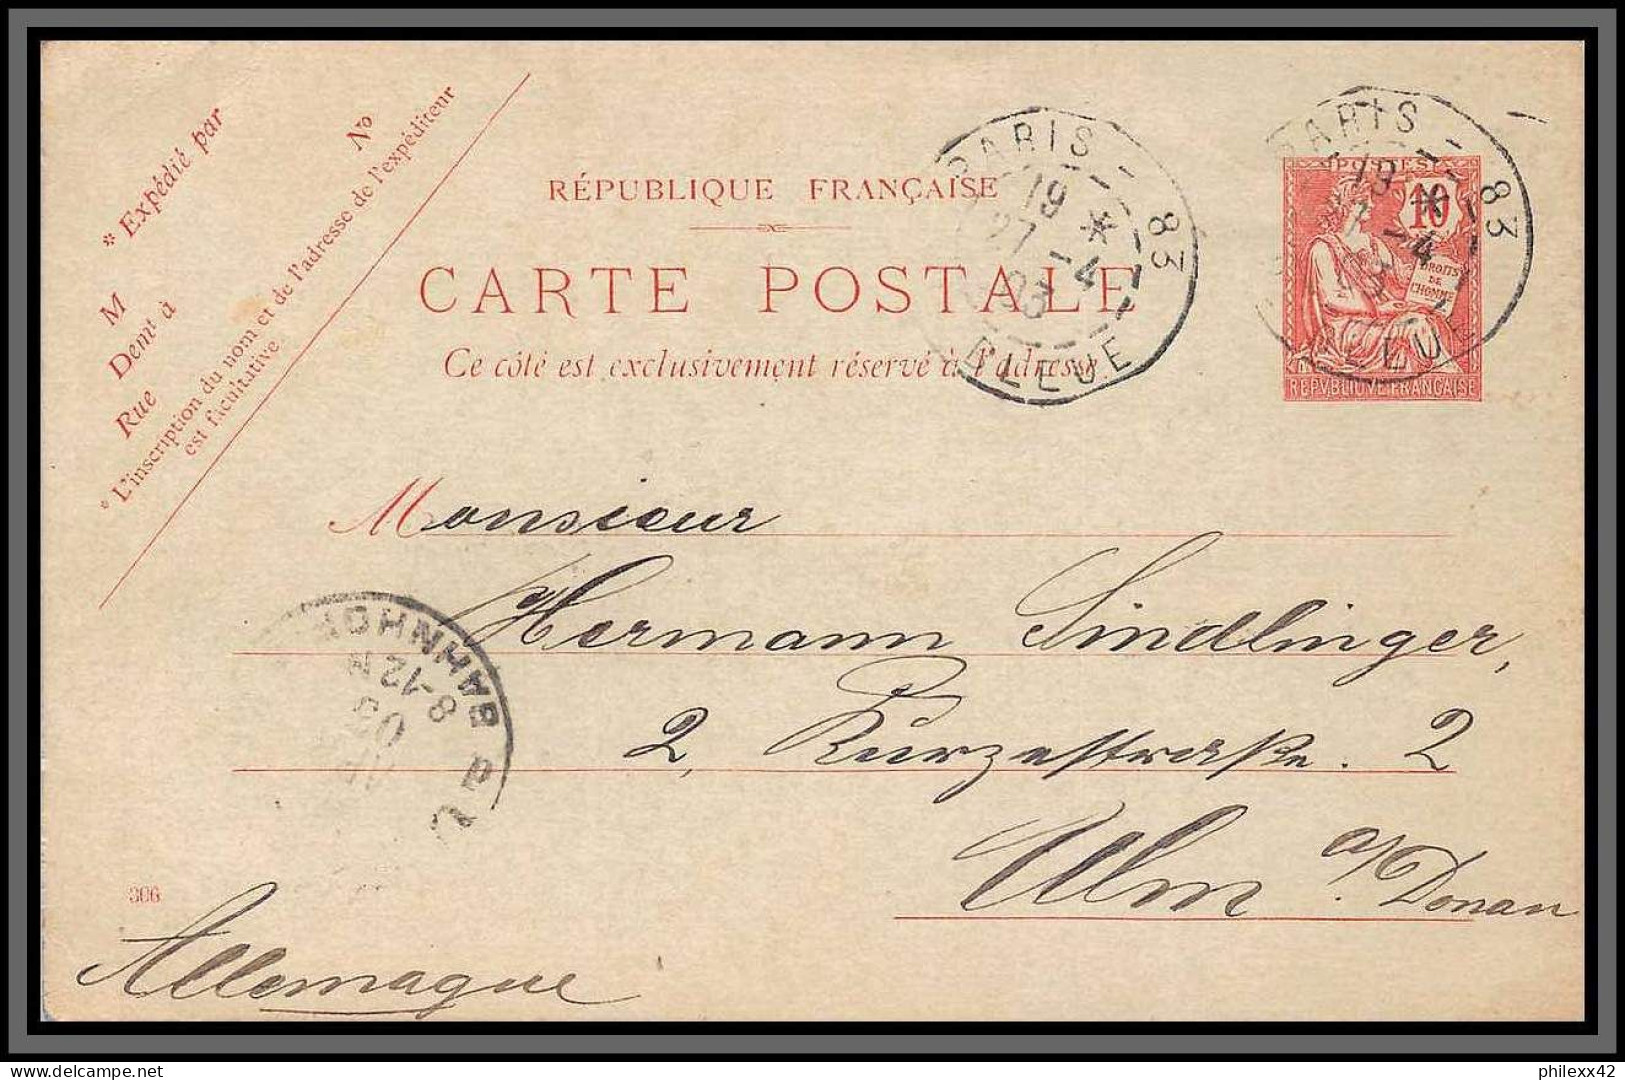 * Expédié par
M
Demt à
Rue
No
* L'inscription du nom et de l'adresse de l'expéditeur
est facultative.
RÉPUBLIQUE FRANÇAISE
CARTE POSTALE
Ce côté est exclusivement réservé à l'adresse
PARIS - 83
19 *
27 -4
03
BLEUE
POSTES
10
DROITS
DE
L'HOMME
REPVBLIQVE FRANÇAISE
PARIS - 83
19 *
-4
03
BLEUE
Monsieur
Hermann Sindlinger,
2, Kurzestraße. 2
Ulm a/Donau
BAHNHOF
8-12
03
306
Allemagne
philexx42
delcampe.net